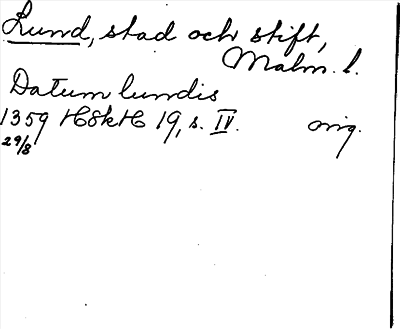 Lund, stad och stift,
Malm. l.
Datum lundis
1359 HSkH 19, s. IV. orig.
29/8